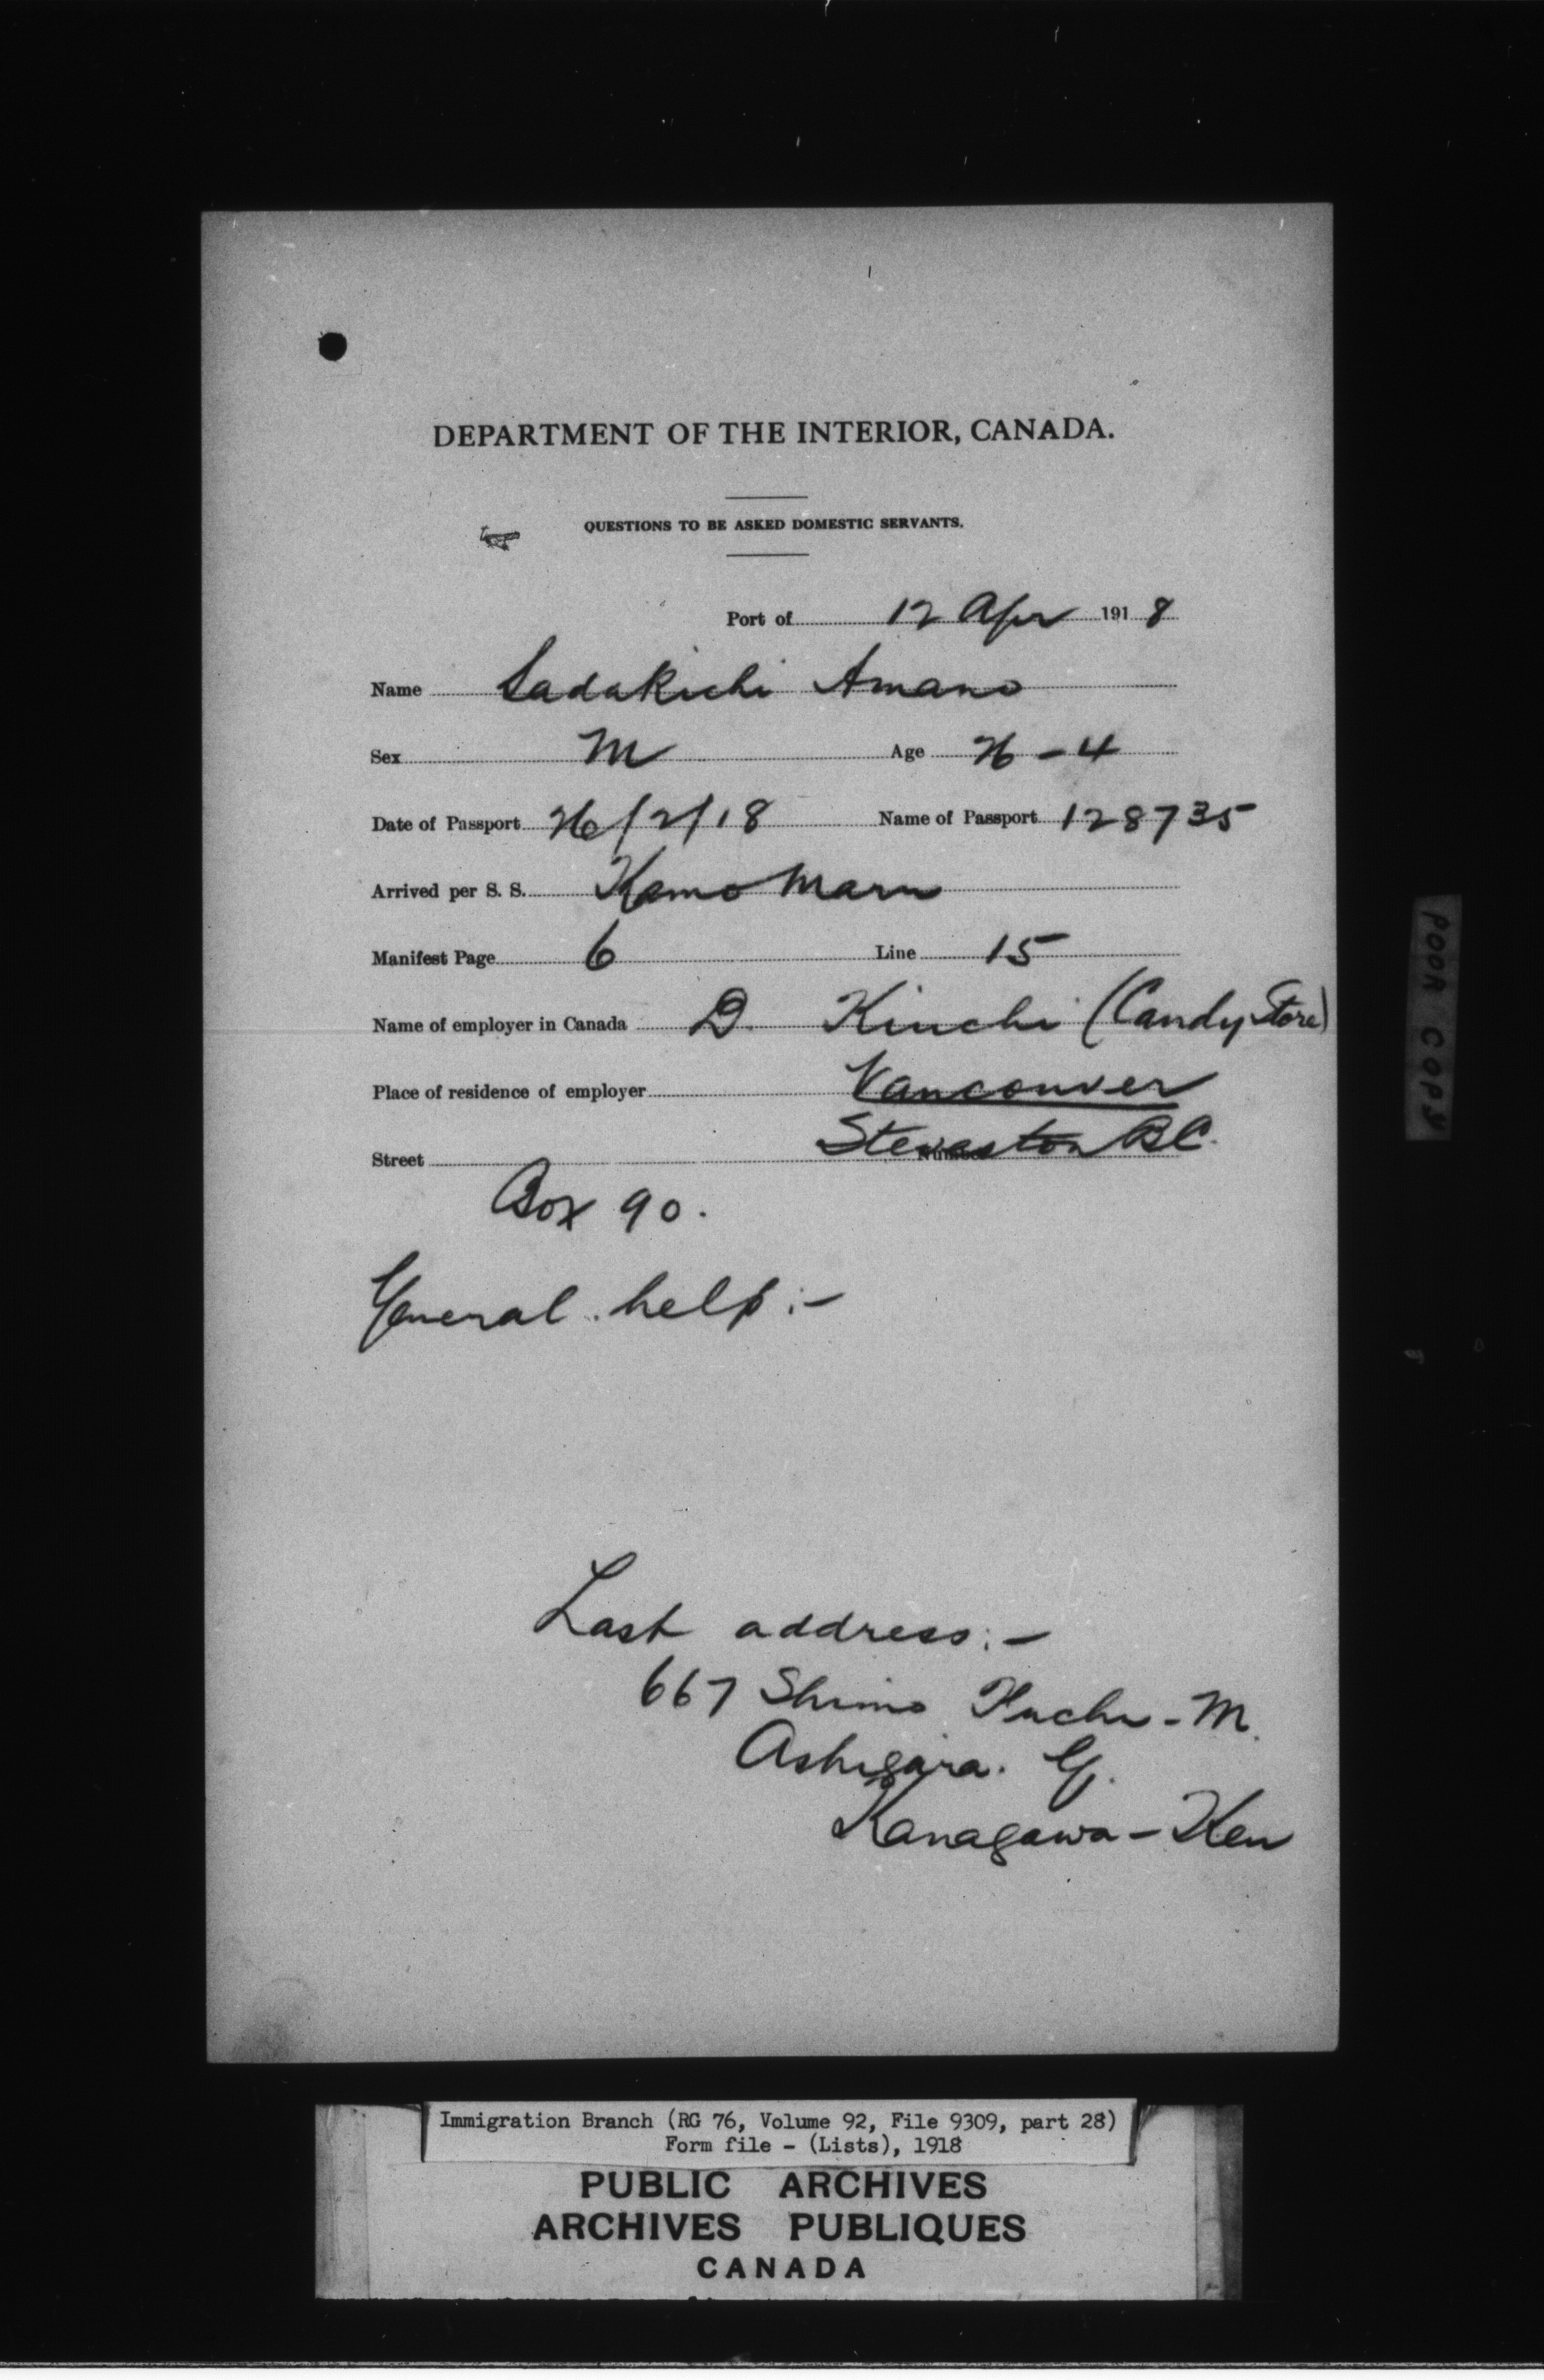 DEPARTMENT OF THE INTERIOR, CANADA.
QUESTIONS TO BE ASKED DOMESTIC SERVANTS.
Port of 12 Apr 1918
Name Sadakichi Amano
Sex M Age 26 - 4
Date of Passport 26/2/18 Name of Passport 128735
Arrived per S. S. Kamo Maru
Manifest Page 6 Line 15
Name of employer in Canada D. Kiuchi (Candy Store)
Place of residence of employer Vancouver
Street Number Steveston BC.
Box 90.
General help :-
Last address :-
667 Shimo - M.
Ashigara. G.
Kanagawa - Ken
POOR COPY
Immigration Branch (RG 76, Volume 92, File 9309, part 28)
Form file - (Lists), 1918
PUBLIC ARCHIVES
ARCHIVES PUBLIQUES
CANADA